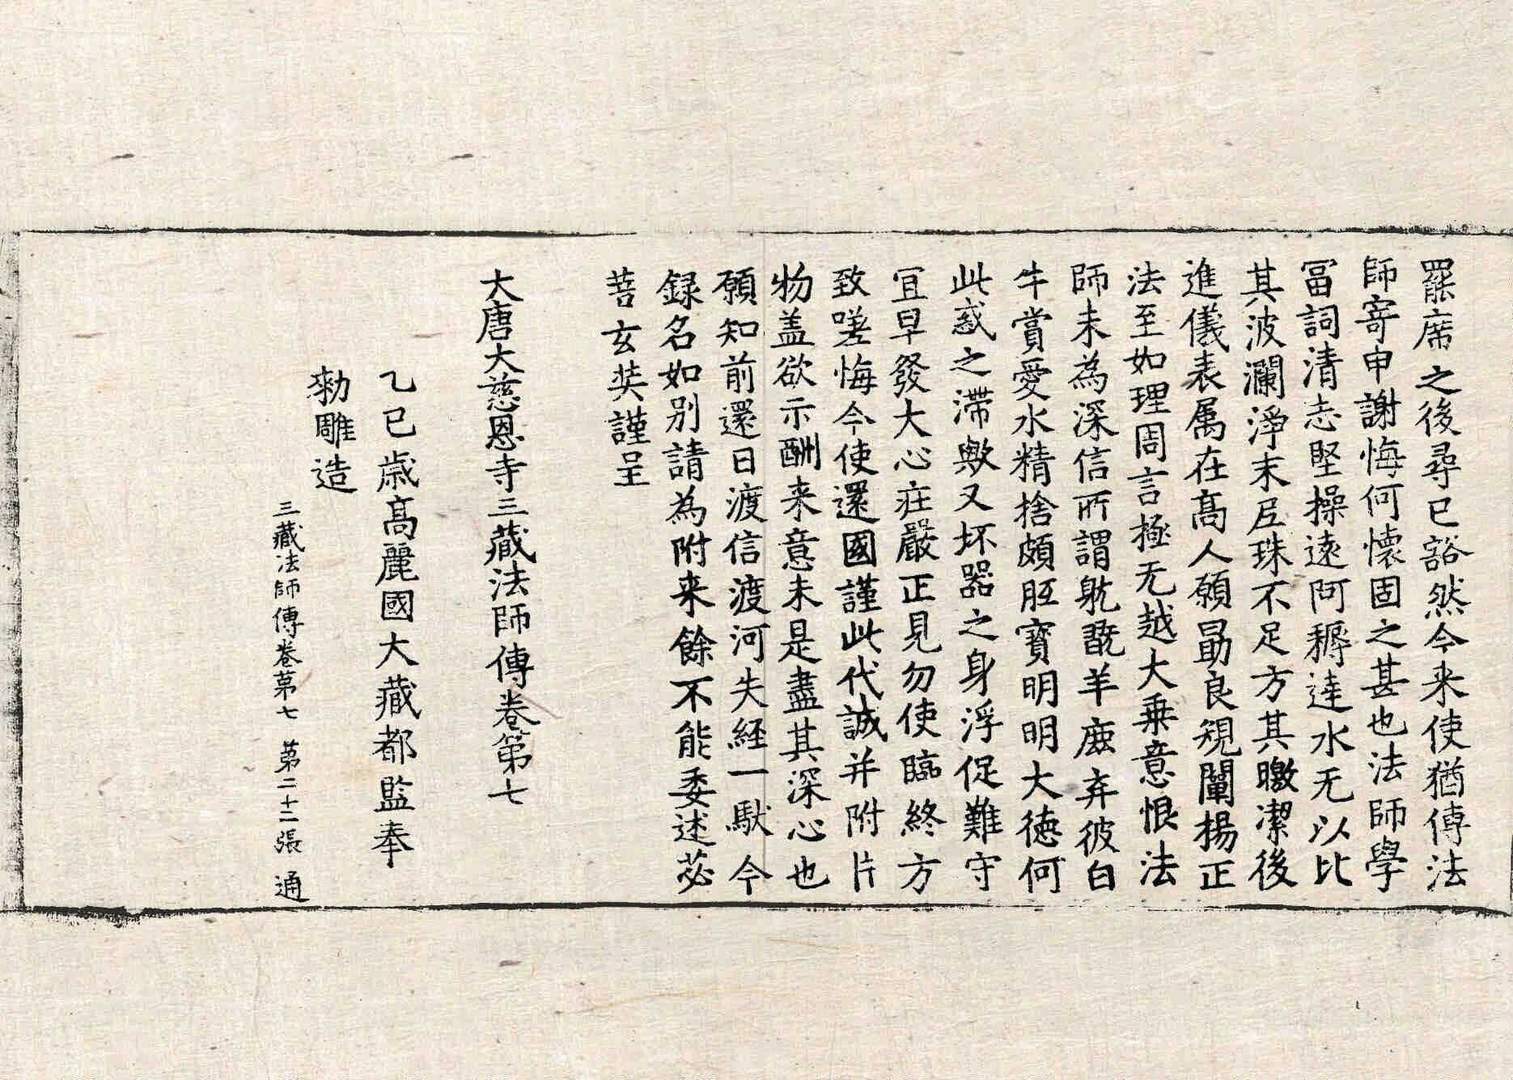 罷席之後尋已豁然今来使猶傳法
師寄申謝悔何懐固之甚也法師學
冨詞清志堅操遠阿耨達水无以比
其波瀾淨末尼珠不足方其曒潔後
進儀表属在髙人願勗良規闡揚正
法至如理周言極无越大乗意恨法
師未為深信所謂躭翫羊鹿弃彼白
牛賞愛水精捨頗胝寳明明大徳何
此惑之滯歟又坏器之身浮促難守
冝早發大心莊嚴正見勿使臨終方
致嗟悔今使還國謹此代誠并附片
物盖欲示酬来意未是盡其深心也
願知前還日渡信渡河失経一馱今
録名如別請為附来餘不能委述苾
蒭玄奘謹呈
大唐大慈恩寺三藏法師傳卷第七
乙巳歳髙麗國大藏都監奉
勑雕造
三藏法師傳卷第七 第二十二張 通